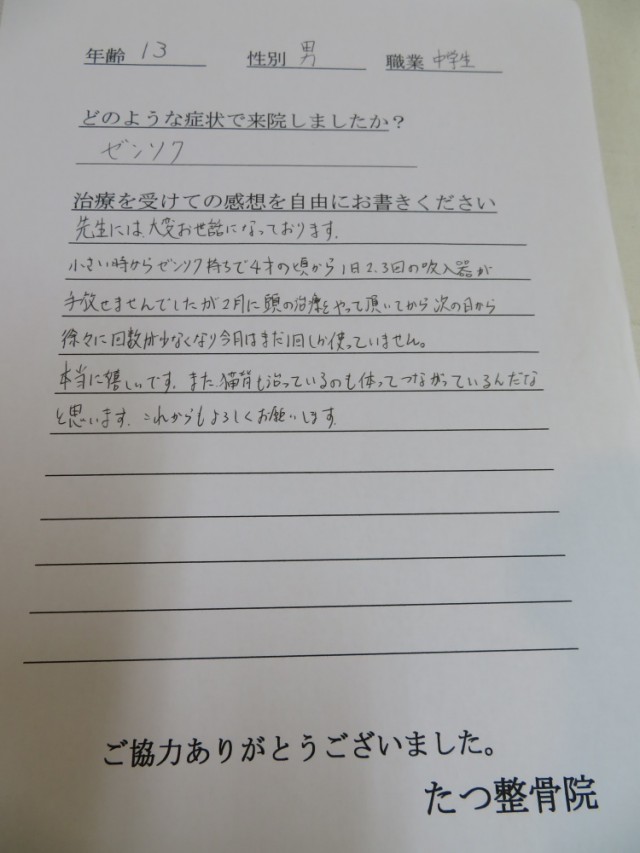 年齢 13 性別 男 職業 中学生
どのような症状で来院しましたか？
ゼンソク
治療を受けての感想を自由にお書きください
先生には、大変お世話になっております。
小さい時からゼンソク持ちで4才の頃から1日2.3回の吸入器が
手放せませんでしたが2月に頭の治療をやって頂いてから次の日から
徐々に回数が少なくなり今月はまだ1回しか使っていません。
本当に嬉しいです。また、猫背も治っているのも体ってつながっているんだな
と思います。これからもよろしくお願いします。
ご協力ありがとうございました。
たつ整骨院